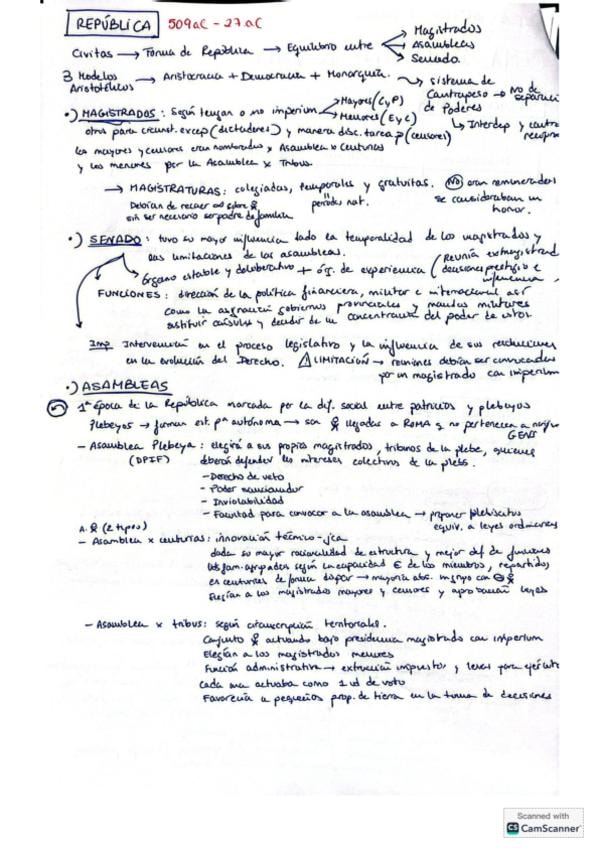 REPÚBLICA 509aC - 27aC
Civitas → Forma de República → Equilibrio entre
Magistrados
Asambleas
Senado.
3 Modelos Aristotélicos → Aristocracia + Democracia + Monarquía.
→ sistema de Contrapeso de Poderes → No de separación
↳ Interdep y control
•) MAGISTRADOS: Según tengan o no imperium
Mayores (C y P)
Menores (E y C)
otros para circunst. excep (dictadores) y manera disc. tarea p (censores)
los mayores y censores eran nombrados x Asamblea x Centurias
y los menores por la Asamblea x Tribus.
→ MAGISTRATURAS: colegiadas, temporales y gratuitas. NO eran remunerados
se consideraban un honor.
Debían de recaer sobre
periodos nat.
sin ser necesario ser padre de familia
•) SENADO: tuvo su mayor influencia dado la temporalidad de los magistrados y
las limitaciones de las asambleas.
Órgano estable y deliberativo + órg. de experiencia (Reunía exmagistrad
decisiones prestigio e influencia
FUNCIONES: dirección de la política financiera, militar e internacional así
como la asignación gobiernos provinciales y mandos militares
sustituir cónsules y decidir de la concentración del poder de estos.
Imp. Intervención en el proceso legislativo y la influencia de sus resoluciones
en la evolución del Derecho. ⚠ LIMITACIÓN → reuniones debían ser convocadas
por un magistrado con imperium
•) ASAMBLEAS
1ª época de la República marcada por la dif. social entre patricios y plebeyos
Plebeyos → forman est. pª autónoma → son llegados a ROMA q no pertenecen a ningún
GENS
- Asamblea Plebeya: elegirá a sus propios magistrados, tribunos de la plebe, quienes
(DPIF) deberán defender los intereses colectivos de la plebe.
- Derecho de veto
- Poder sancionador
- Inviolabilidad
- Facultad para convocar a la asamblea → proponer plebiscitos
equiv. a leyes ordinarias
(2 tipos)
- Asamblea x centurias: innovación técnico-jca
dada su mayor racionalidad de estructura y mejor def de funciones
agrupados según la capacidad € de los miembros, repartidos
en centurias de forma dispar → mayoría abs. un grupo con
Elegían a los magistrados mayores y censores y aprobaban leyes
- Asamblea x tribus: según circunscripción territoriales.
Conjunto actuando bajo presidencia magistrado con imperium
Elegían a los magistrados menores
Función administrativa → extracción impuestos y levas para ejército
Cada una actuaba como 1 ud de voto
Favorecía a pequeños prop. de tierra en la toma de decisiones
Scanned with
CS CamScanner